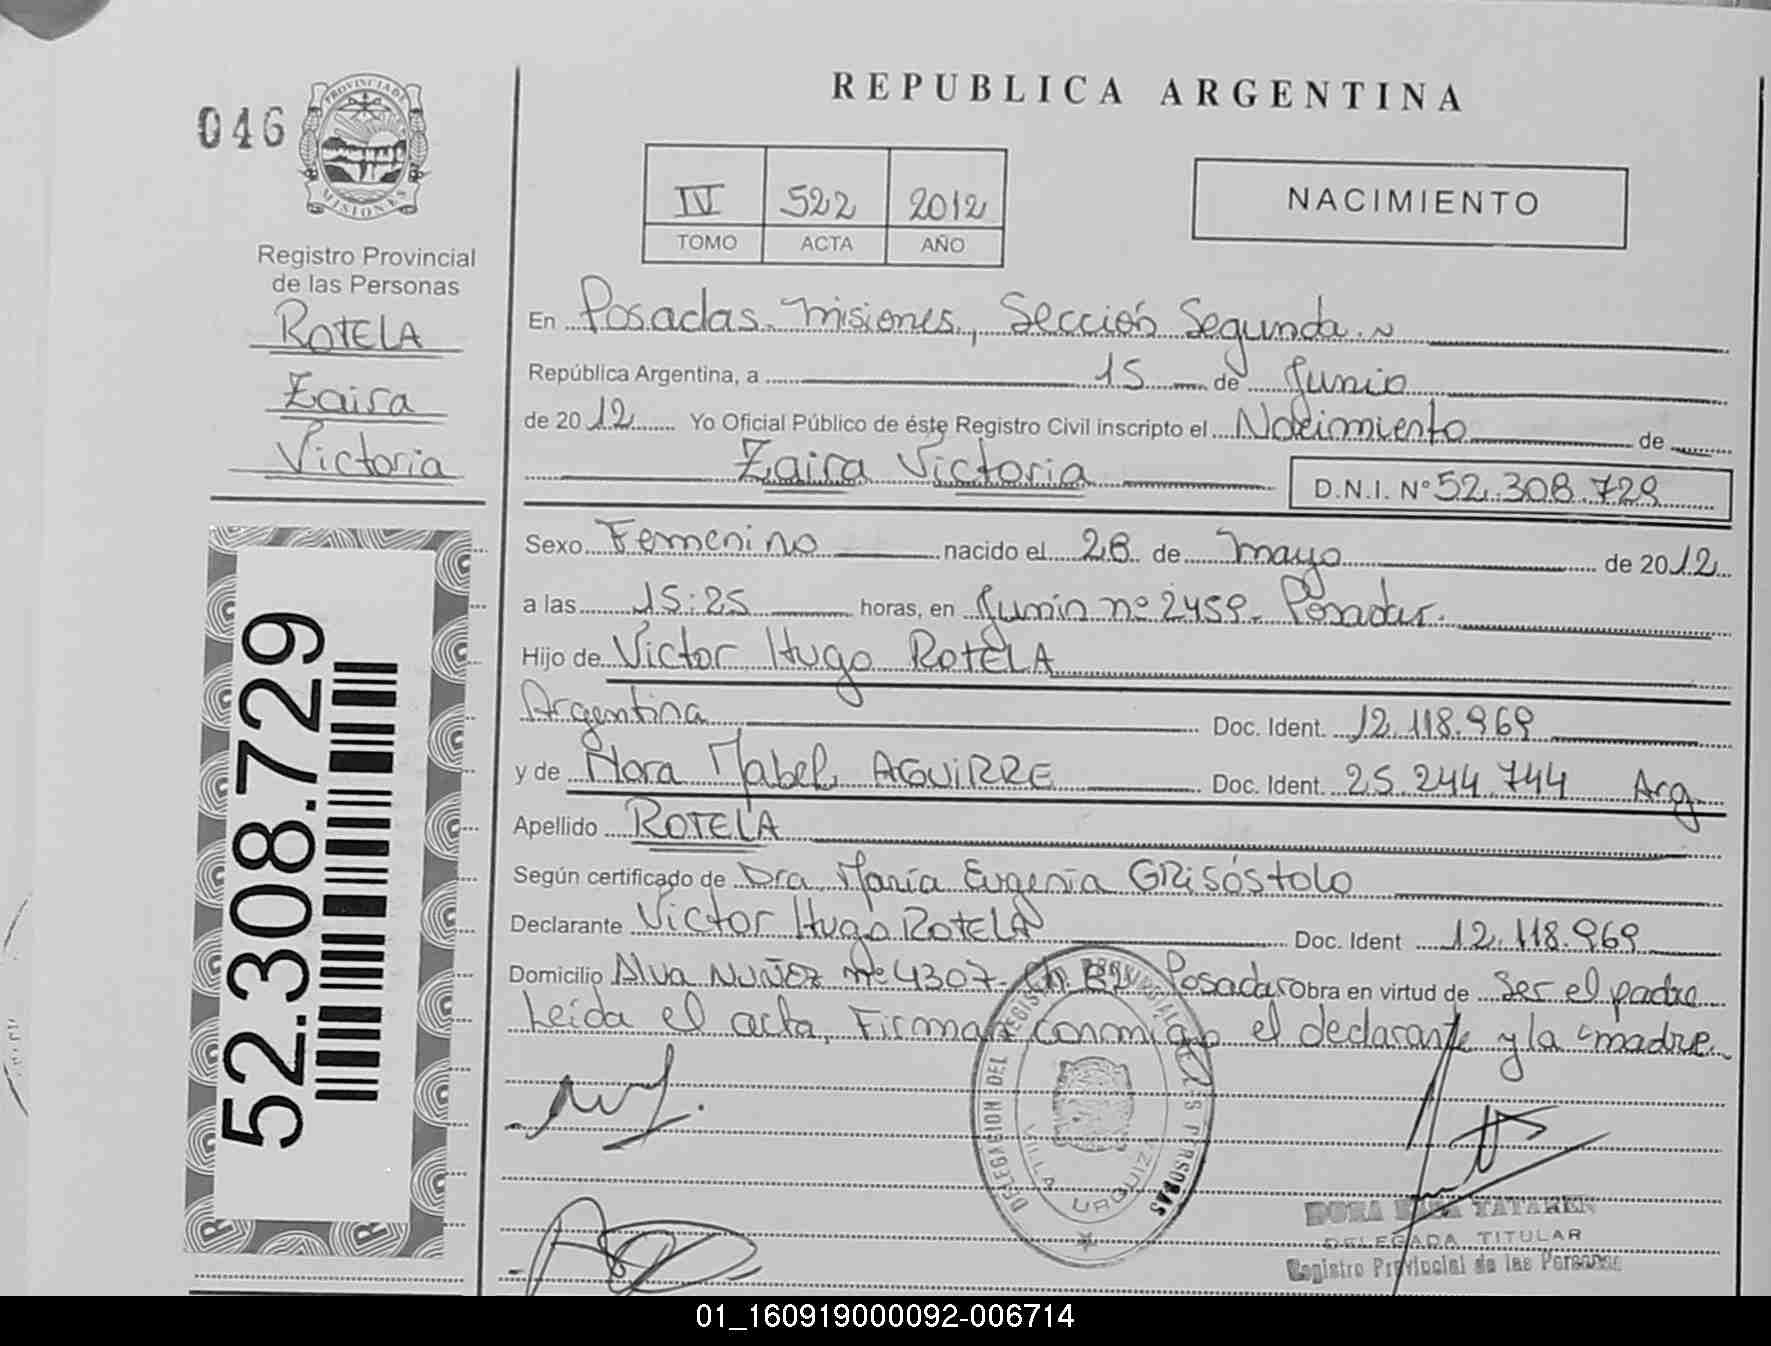 REPUBLICA ARGENTINA
046
PROVINCIA DE
MISIONES
Registro Provincial
de las Personas
ROTELA
Zaira
Victoria
52.308.729
IV 522 2012
TOMO ACTA AÑO
NACIMIENTO
En Posadas. Misiones, Sección Segunda.
República Argentina, a 15 de Junio
de 2012 Yo Oficial Público de éste Registro Civil inscripto el Nacimiento de
Zaira Victoria D.N.I. Nº 52.308.729
Sexo Femenino nacido el 28 de mayo de 2012
a las 15:25 horas, en Junín nº 2459. Posadas.
Hijo de Victor Hugo ROTELA
Argentina Doc. Ident. 12.118.969
y de Nora Mabel AGUIRRE Doc. Ident. 25.244.744 Arg
Apellido ROTELA
Según certificado de Dra. María Eugenia GRISÓSTOLO
Declarante Victor Hugo ROTELA Doc. Ident 12.118.969
Domicilio Alva NUÑEZ nº 4307. Ch. Posadas Obra en virtud de Ser el padre
Leída el acta, Firman conmigo el declarante y la madre.
DELEGACION DEL REGISTRO PROVINCIAL DE LAS PERSONAS
VILLA URQUIZA
DELEGADA TITULAR
Registro Provincial de las Personas
01_160919000092-006714